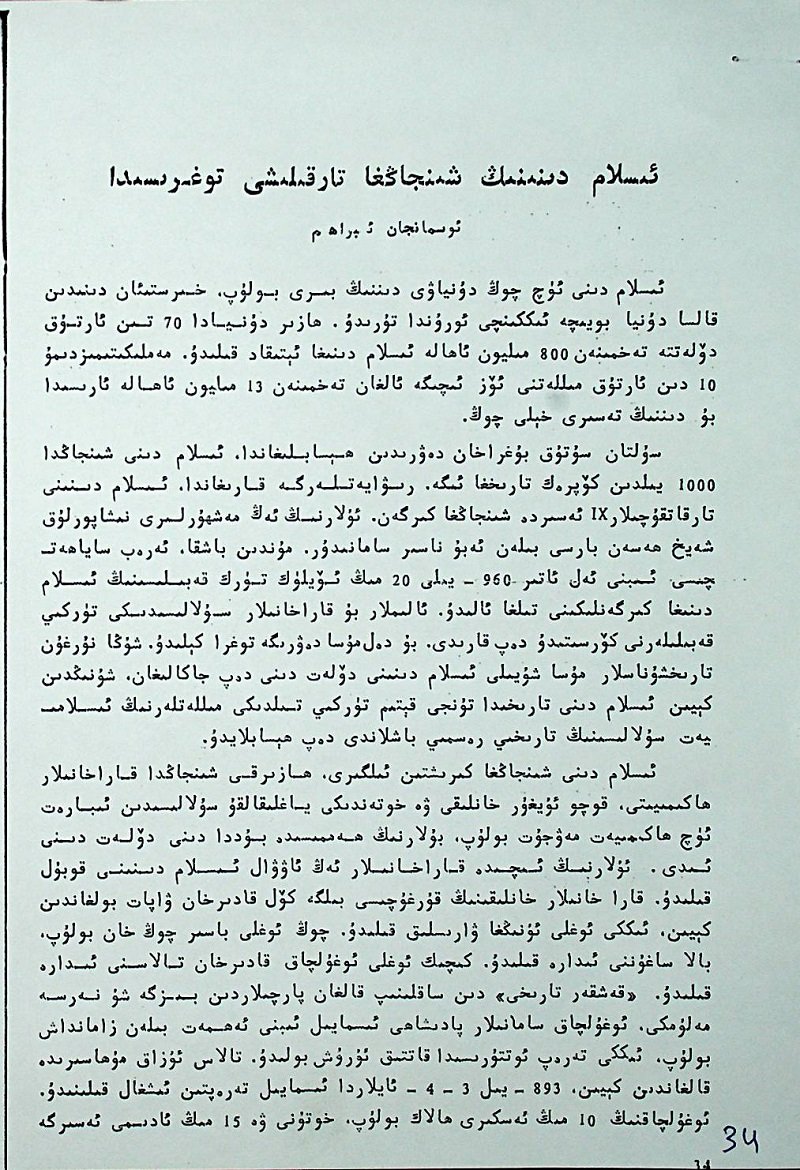 ئىسلام دىنىنىڭ شىنجاڭغا تارقىلىشى توغرىسىدا
ئوسمانجان ئىبراھىم
ئىسلام دىنى ئۈچ چوڭ دۇنياۋى دىننىڭ بىرى بولۇپ، خىرىستىئان دىنىدىن
قالسا دۇنيا بويىچە ئىككىنچى ئورۇندا تۇرىدۇ. ھازىر دۇنيادا 70 تىن ئارتۇق
دۆلەتتە تەخمىنەن 800 مىليون ئاھالە ئىسلام دىنىغا ئېتىقاد قىلىدۇ. مەملىكىتىمىزدىمۇ
10 دىن ئارتۇق مىللەتنى ئۆز ئىچىگە ئالغان تەخمىنەن 13 مىليون ئاھالە ئارىسىدا
بۇ دىننىڭ تەسىرى خېلى چوڭ.
سۇلتان سۇتۇق بۇغراخان دەۋرىدىن ھېسابلىغاندا، ئىسلام دىنى شىنجاڭدا
1000 يىلدىن كۆپرەك تارىخغا ئىگە. رىۋايەتلەرگە قارىغاندا، ئىسلام دىنىنى
تارقاتقۇچىلار IX ئەسىردە شىنجاڭغا كىرگەن. ئۇلارنىڭ ئەڭ مەشھۇرلىرى نىشاپورلۇق
شەيخ ھەسەن بارسى بىلەن ئەبۇ ناسىر سامانىدۇر. مۇندىن باشقا، ئەرەپ ساياھەتـ
چىسى ئىبنى ئەل ئاتىر 960 ـ يىلى 20 مىڭ ئۆيلۈك تۈرك قەبىلىسىنىڭ ئىسلام
دىنىغا كىرگەنلىكىنى تىلغا ئالىدۇ. ئالىملار بۇ قاراخانىلار سۇلالىسىدىكى تۈركىي
قەبىلىلەرنى كۆرسىتىدۇ دەپ قارىدى. بۇ دەل مۇسا دەۋرىگە توغرا كېلىدۇ. شۇڭا نۇرغۇن
تارىخشۇناسلار مۇسا شۇ يىلى ئىسلام دىنىنى دۆلەت دىنى دەپ جاكالىغان، شۇنىڭدىن
كېيىن ئىسلام دىنى تارىخىدا تۇنجى قېتىم تۈركىي تىلدىكى مىللەتلەرنىڭ ئىسلامىـ
يەت سۇلالىسىنىڭ تارىخىي رەسمىي باشلاندى دەپ ھېسابلايدۇ.
ئىسلام دىنى شىنجاڭغا كىرىشتىن ئىلگىرى، ھازىرقى شىنجاڭدا قاراخانىلار
ھاكىمىيىتى، قوچو ئۇيغۇر خانلىقى ۋە خوتەندىكى ياغلىقالقۇ سۇلالىسىدىن ئىبارەت
ئۈچ ھاكىمىيەت مەۋجۇت بولۇپ، بۇلارنىڭ ھەممىسىدە بۇددا دىنى دۆلەت دىنى
ئىدى. ئۇلارنىڭ ئىچىدە قاراخانىلار ئەڭ ئاۋۋال ئىسلام دىنىنى قوبۇل
قىلىدۇ. قارا خانىلار خانلىقىنىڭ قۇرغۇچىسى بىلگە كۆل قادىرخان ۋاپات بولغاندىن
كېيىن، ئىككى ئوغلى ئۇنىڭغا ۋارىسلىق قىلىدۇ. چوڭ ئوغلى باسىر چوڭ خان بولۇپ،
بالا ساغۇننى ئىدارە قىلىدۇ. كىچىك ئوغلى ئوغۇلچاق قادىرخان تالاسنى ئىدارە
قىلىدۇ. «قەشقەر تارىخى» دىن ساقلىنىپ قالغان پارچىلاردىن بىزگە شۇ نەرسە
مەلۇمكى، ئوغۇلچاق سامانىلار پادىشاھى ئىسمايىل ئىبنى ئەھمەت بىلەن زامانداش
بولۇپ، ئىككى تەرەپ ئوتتۇرىسىدا قاتتىق ئۇرۇش بولىدۇ. تالاس ئۇزاق مۇھاسىرىدە
قالغاندىن كېيىن، 893 ـ يىل 3 ـ 4 ـ ئايلاردا ئىسمايىل تەرەپىتىن ئىشغال قىلىنىدۇ.
ئوغۇلچاقنىڭ 10 مىڭ ئەسكىرى ھالاك بولۇپ، خوتۇنى ۋە 15 مىڭ ئادىمى ئەسىرگە
34
34